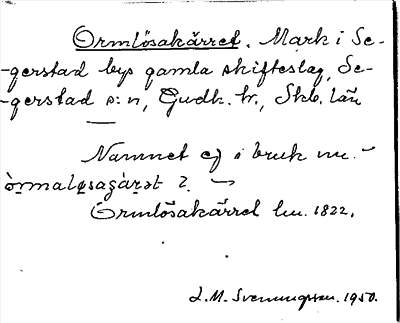 Ormlösakärret. Mark i Se-
-gerstad bys gamla skifteslag, Se-
-gerstad s:n, Gudh. hr., Skb. län
Namnet ej i bruk nu.
òrmaløsaʂàrət ?.
Ormlösakärret hm. 1822.
L.M. Svenungsson. 1950.